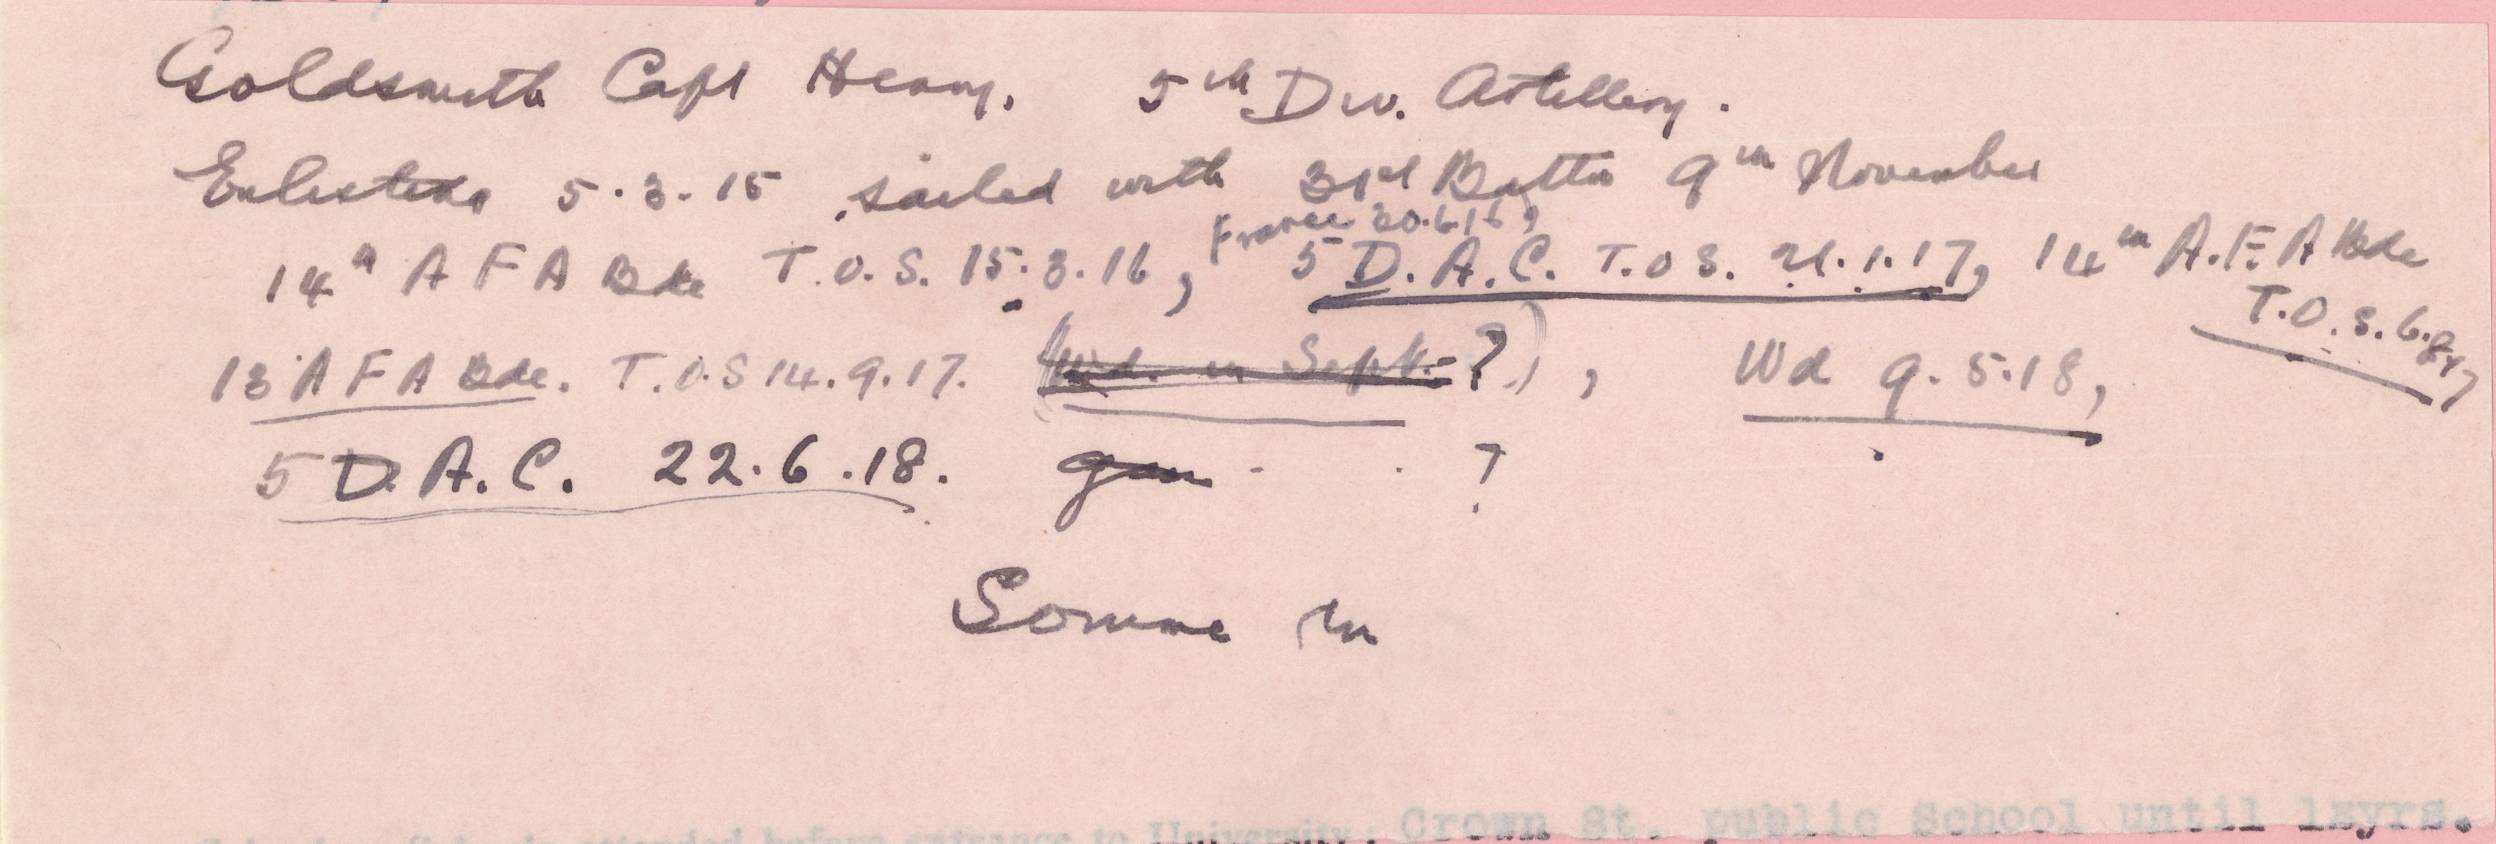 Goldsmith Capt Henry. 5th Div. Artillery.
Enlisted 5.3.15 sailed with 31st Battn 9th November
France 20.6.16,
14th A F A Bde T.O.S. 15.3.16, 5 D.A.C. T.O.S. 21.1.17, 14th A.F.A Bde
T.O.S. 6.8.17,
13 A F A Bde. T.O.S 14.9.17. (Wd. in Sept. ?), Wd 9.5.18,
5 D.A.C. 22.6.18. ?
Somme
attended before entrance to University: Crown St. public School until 12yrs.